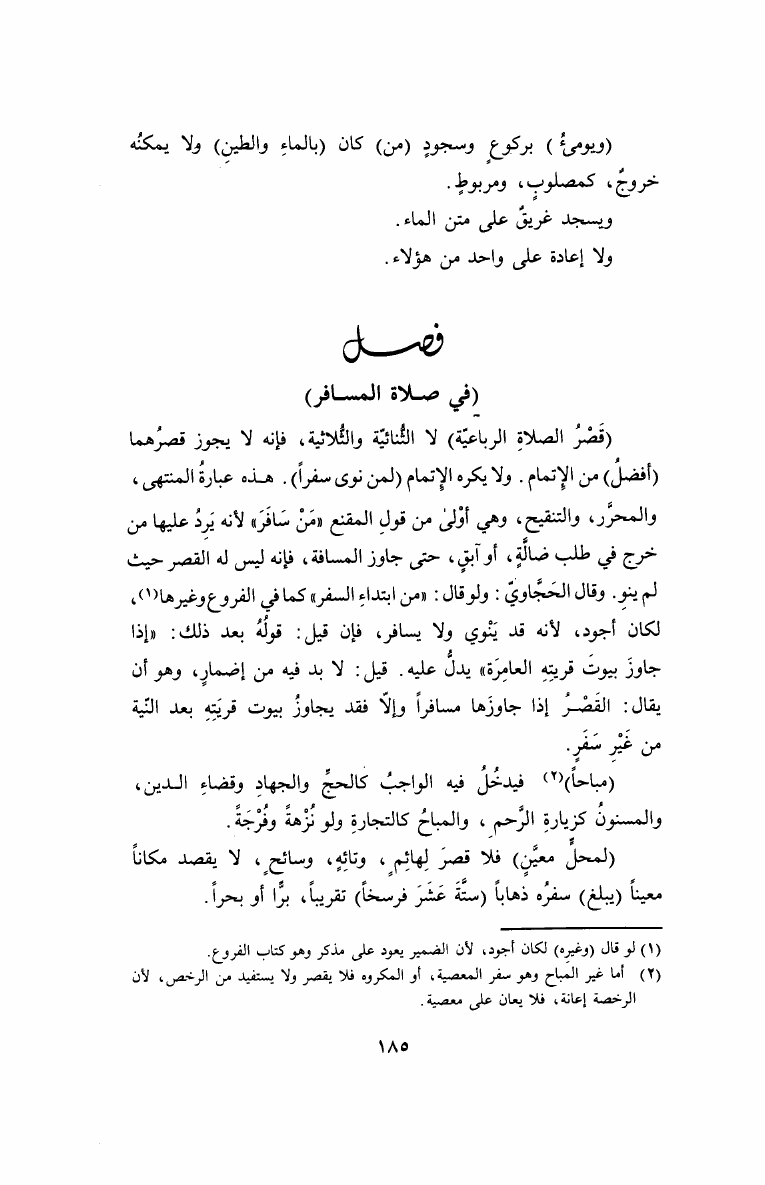 (ويومئُ) بركوعٍ وسجودٍ (من) كان (بالماءِ والطينِ) ولا يمكنُه
خروجٌ، كمصلوبٍ، ومربوطٍ.
ويسجد غريقٌ على متن الماء.
ولا إعادة على واحد من هؤلاء.
فصل
(في صلاة المسافر)
(قَصْرُ الصلاةِ الرباعيّة) لا الثُّنائيّة والثُّلاثية، فإنه لا يجوز قصرُهما
(أفضلُ) من الإتمام. ولا يكره الإتمام (لمن نوى سفراً). هذه عبارةُ المنتهى،
والمحرَّر، والتنقيح، وهي أوْلىٰ من قولِ المقنع «مَنْ سَافَرَ» لأنه يَرِدُ عليها من
خرج في طلب ضالَّةٍ، أو آبقٍ، حتى جاوز المسافة، فإنه ليس له القصر حيث
لم ينوِ. وقال الحَجَّاويّ: ولو قال: «من ابتداءِ السفر» كما في الفروع وغيرها(١)،
لكان أجود، لأنه قد يَنْوي ولا يسافر، فإن قيل: قولُهُ بعد ذلك: «إذا
جاوزَ بيوتَ قريتِهِ العامِرَة» يدلُّ عليه. قيل: لا بد فيه من إضمارٍ، وهو أن
يقال: القَصْرُ إذا جاوزَها مسافراً وإلّا فقد يجاوزُ بيوت قريَتِهِ بعد النّية
من غَيْرِ سَفَرٍ.
(مباحاً)(٢) فيدخُلُ فيه الواجبُ كالحجِّ والجهادِ وقضاءِ الدين،
والمسنونُ كزيارةِ الرَّحم، والمباحُ كالتجارةِ ولو نُزْهةً وفُرْجَةً.
(لمحلٍّ معيَّنٍ) فلا قصرَ لِهائِمٍ، وتائِهٍ، وسائحٍ، لا يقصد مكاناً
معيناً (يبلغ) سفرُه ذهاباً (ستَّةَ عَشَرَ فرسخاً) تقريباً، برًّا أو بحراً.
(١) لو قال (وغيرِه) لكان أجود، لأن الضمير يعود على مذكر وهو كتاب الفروع.
(٢) أما غير المباح وهو سفر المعصية، أو المكروه فلا يقصر ولا يستفيد من الرخص، لأن
الرخصة إعانة، فلا يعان على معصية.
١٨٥